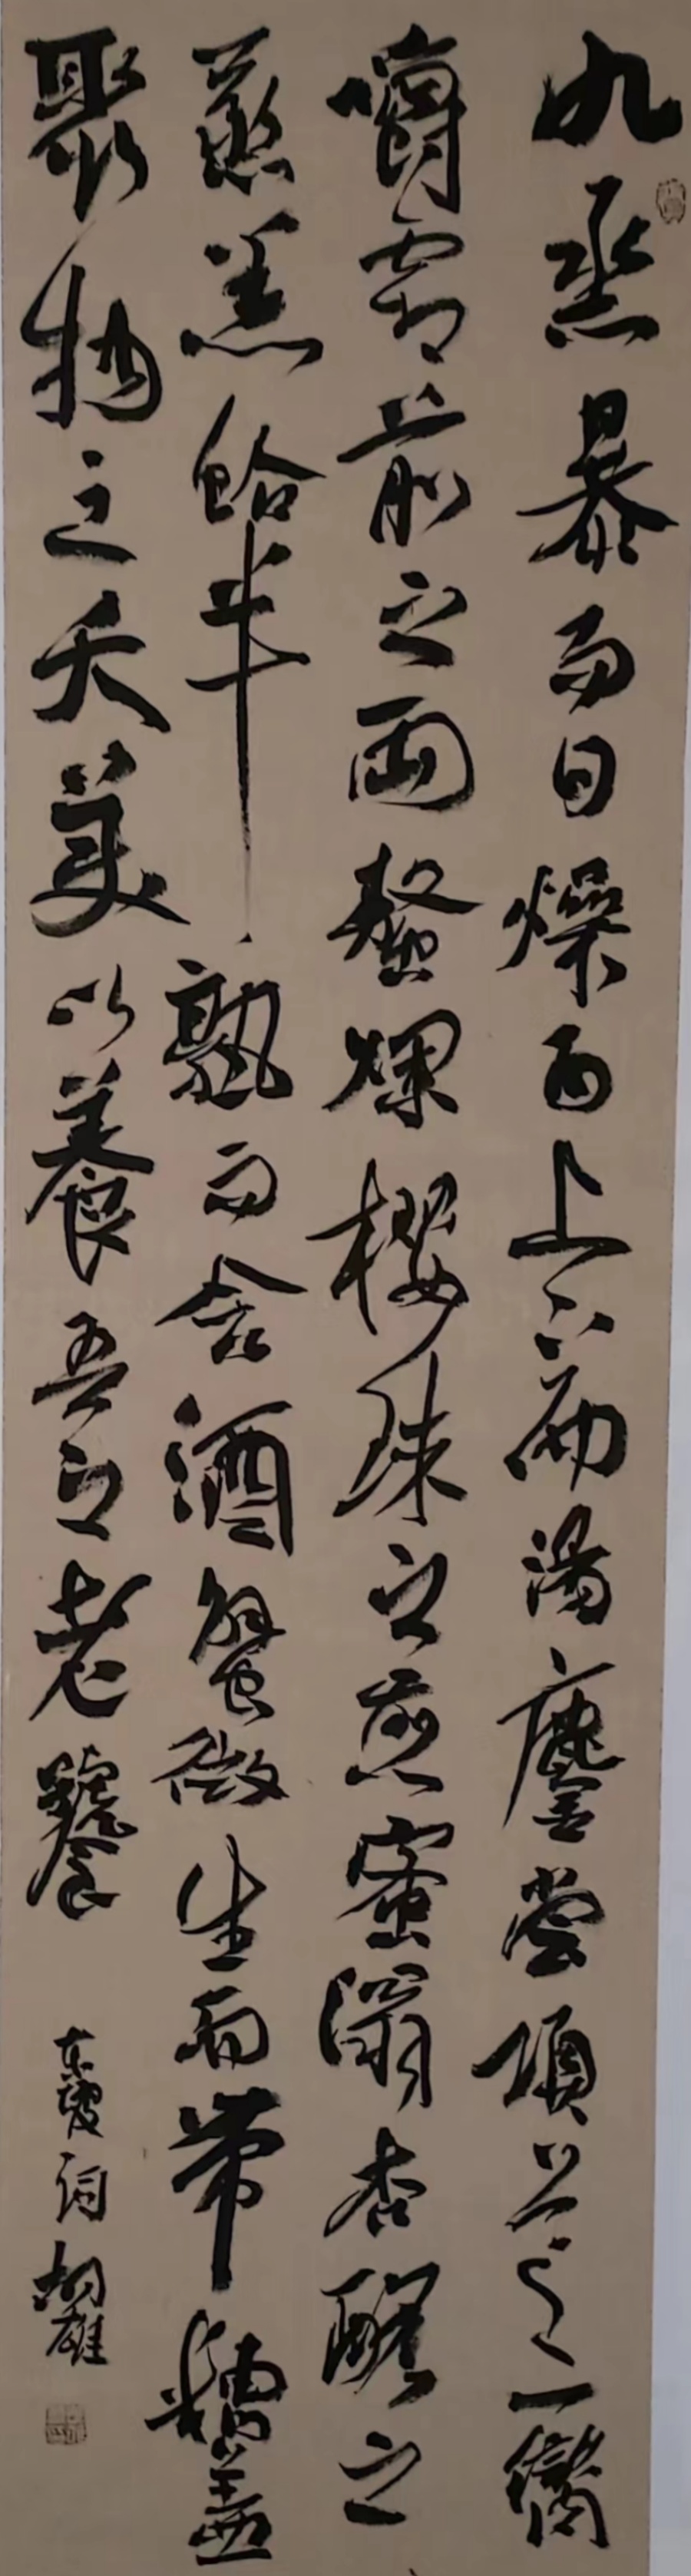 九蒸暴而日燥百上下而湯鏖嘗項上之一臠
嚼霜前之兩螯爛櫻珠之煎蜜滃杏酪之
蒸羔蛤半熟而含酒蟹微生而帶糟蓋
聚物之夭美以養吾之老饕
東坡詞 胡雄